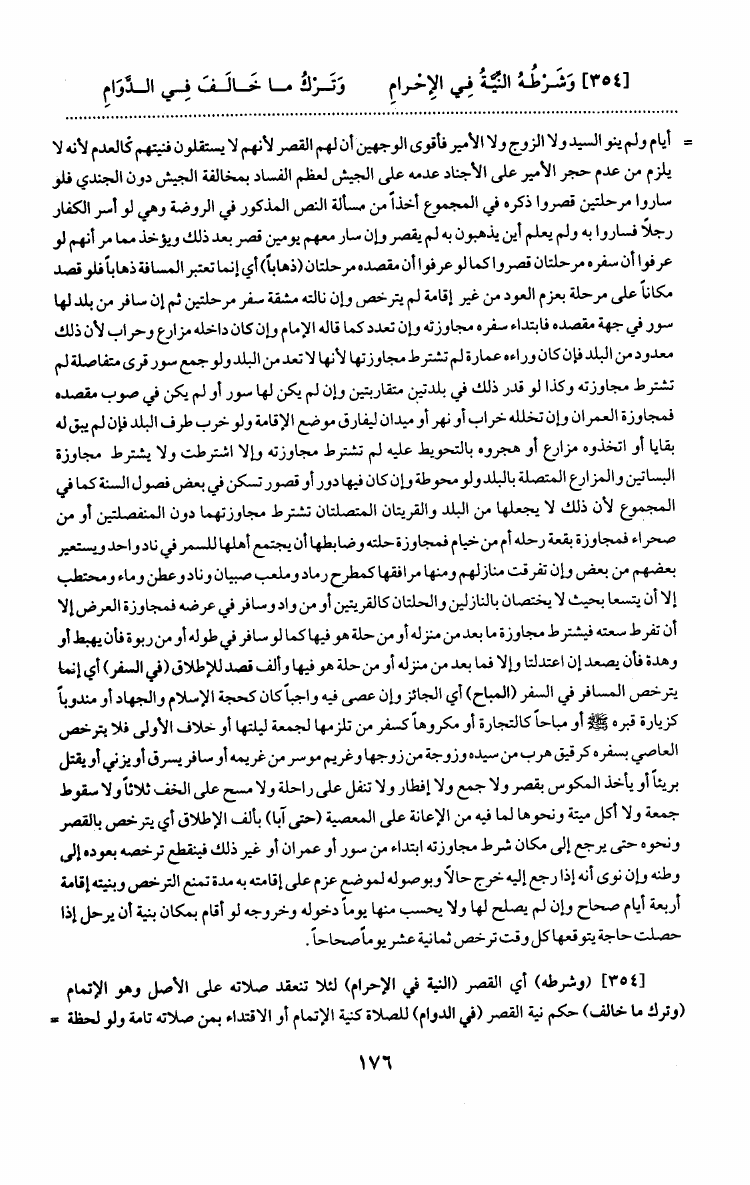 [٣٥٤] وَشَرْطُهُ النِّيَّةُ فِي الإِحْرامِ وَتَـرْكُ مـا خَـالَـفَ فِـي الـدَّوَامِ
= أيام ولم ينو السيد ولا الزوج ولا الأمير فأقوى الوجهين أن لهم القصر لأنهم لا يستقلون فنيتهم كالعدم لأنه لا
يلزم من عدم حجر الأمير على الأجناد عدمه على الجيش لعظم الفساد بمخالفة الجيش دون الجندي فلو
ساروا مرحلتين قصروا ذكره في المجموع أخذاً من مسألة النص المذكور في الروضة وهي لو أسر الكفار
رجلاً فساروا به ولم يعلم أين يذهبون به لم يقصر وإن سار معهم يومين قصر بعد ذلك ويؤخذ مما مر أنهم لو
عرفوا أن سفره مرحلتان قصروا كما لو عرفوا أن مقصده مرحلتان (ذهاباً) أي إنما تعتبر المسافة ذهاباً فلو قصد
مكاناً على مرحلة بعزم العود من غير إقامة لم يترخص وإن نالته مشقة سفر مرحلتين ثم إن سافر من بلد لها
سور في جهة مقصده فابتداء سفره مجاوزته وإن تعدد كما قاله الإمام وإن كان داخله مزارع وحراب لأن ذلك
معدود من البلد فإن كان وراءه عمارة لم تشترط مجاوزتها لأنها لا تعد من البلد ولو جمع سور قرى متفاصلة لم
تشترط مجاوزته وكذا لو قدر ذلك في بلدتين متقاربتين وإن لم يكن لها سور أو لم يكن في صوب مقصده
فمجاوزة العمران وإن تخلله خراب أو نهر أو ميدان ليفارق موضع الإقامة ولو خرب طرف البلد فإن لم يبق له
بقايا أو اتخذوه مزارع أو هجروه بالتحويط عليه لم تشترط مجاوزته وإلا اشترطت ولا يشترط مجاوزة
البساتين والمزارع المتصلة بالبلد ولو محوطة وإن كان فيها دور أو قصور تسكن في بعض فصول السنة كما في
المجموع لأن ذلك لا يجعلها من البلد والقريتان المتصلتان تشترط مجاوزتهما دون المنفصلتين أو من
صحراء فمجاوزة بقعة رحله أم من خيام فمجاوزة حلته وضابطها أن يجتمع أهلها للسمر في ناد واحد ويستعير
بعضهم من بعض وإن تفرقت منازلهم ومنها مرافقها كمطرح رماد وملعب صبيان وناد وعطن وماء ومحتطب
إلا أن يتسعا بحيث لا يختصان بالنازلين والحلتان كالقريتين أو من واد وسافر في عرضه فمجاوزة العرض إلا
أن تفرط سعته فيشترط مجاوزة ما بعد من منزله أو من حلة هو فيها كما لو سافر في طوله أو من ربوة فأن يهبط أو
وهدة فأن يصعد إن اعتدلتا وإلا فما بعد من منزله أو من حلة هو فيها وألف قصد للإطلاق (في السفر) أي إنما
يترخص المسافر في السفر (المباح) أي الجائز وإن عصى فيه واجباً كان كحجة الإسلام والجهاد أو مندوباً
كزيارة قبره ﷺ أو مباحاً كالتجارة أو مكروهاً كسفر من تلزمها لجمعة ليلتها أو خلاف الأولى فلا يترخص
العاصي بسفره كرقيق هرب من سيده وزوجة من زوجها وغريم موسر من غريمه أو سافر يسرق أو يزني أو يقتل
بريئاً أو يأخذ المكوس بقصر ولا جمع ولا إفطار ولا تنفل على راحلة ولا مسح على الخف ثلاثاً ولا سقوط
جمعة ولا أكل ميتة ونحوها لما فيه من الإعانة على المعصية (حتى آبا) بألف الإطلاق أي يترخص بالقصر
ونحوه حتى يرجع إلى مكان شرط مجاوزته ابتداء من سور أو عمران أو غير ذلك فينقطع ترخصه بعوده إلى
وطنه وإن نوى أنه إذا رجع إليه خرج حالاً وبوصوله لموضع عزم على إقامته به مدة تمنع الترخص وبنيته إقامة
أربعة أيام صحاح وإن لم يصلح لها ولا يحسب منها يوماً دخوله وخروجه لو أقام بمكان بنية أن يرحل إذا
حصلت حاجة يتوقعها كل وقت ترخص ثمانية عشر يوماً صحاحاً.
[٣٥٤] (وشرطه) أي القصر (النية في الإحرام) لئلا تنعقد صلاته على الأصل وهو الإتمام
(وترك ما خالف) حكم نية القصر (في الدوام) للصلاة كنية الإتمام أو الاقتداء بمن صلاته تامة ولو لحظة =
١٧٦